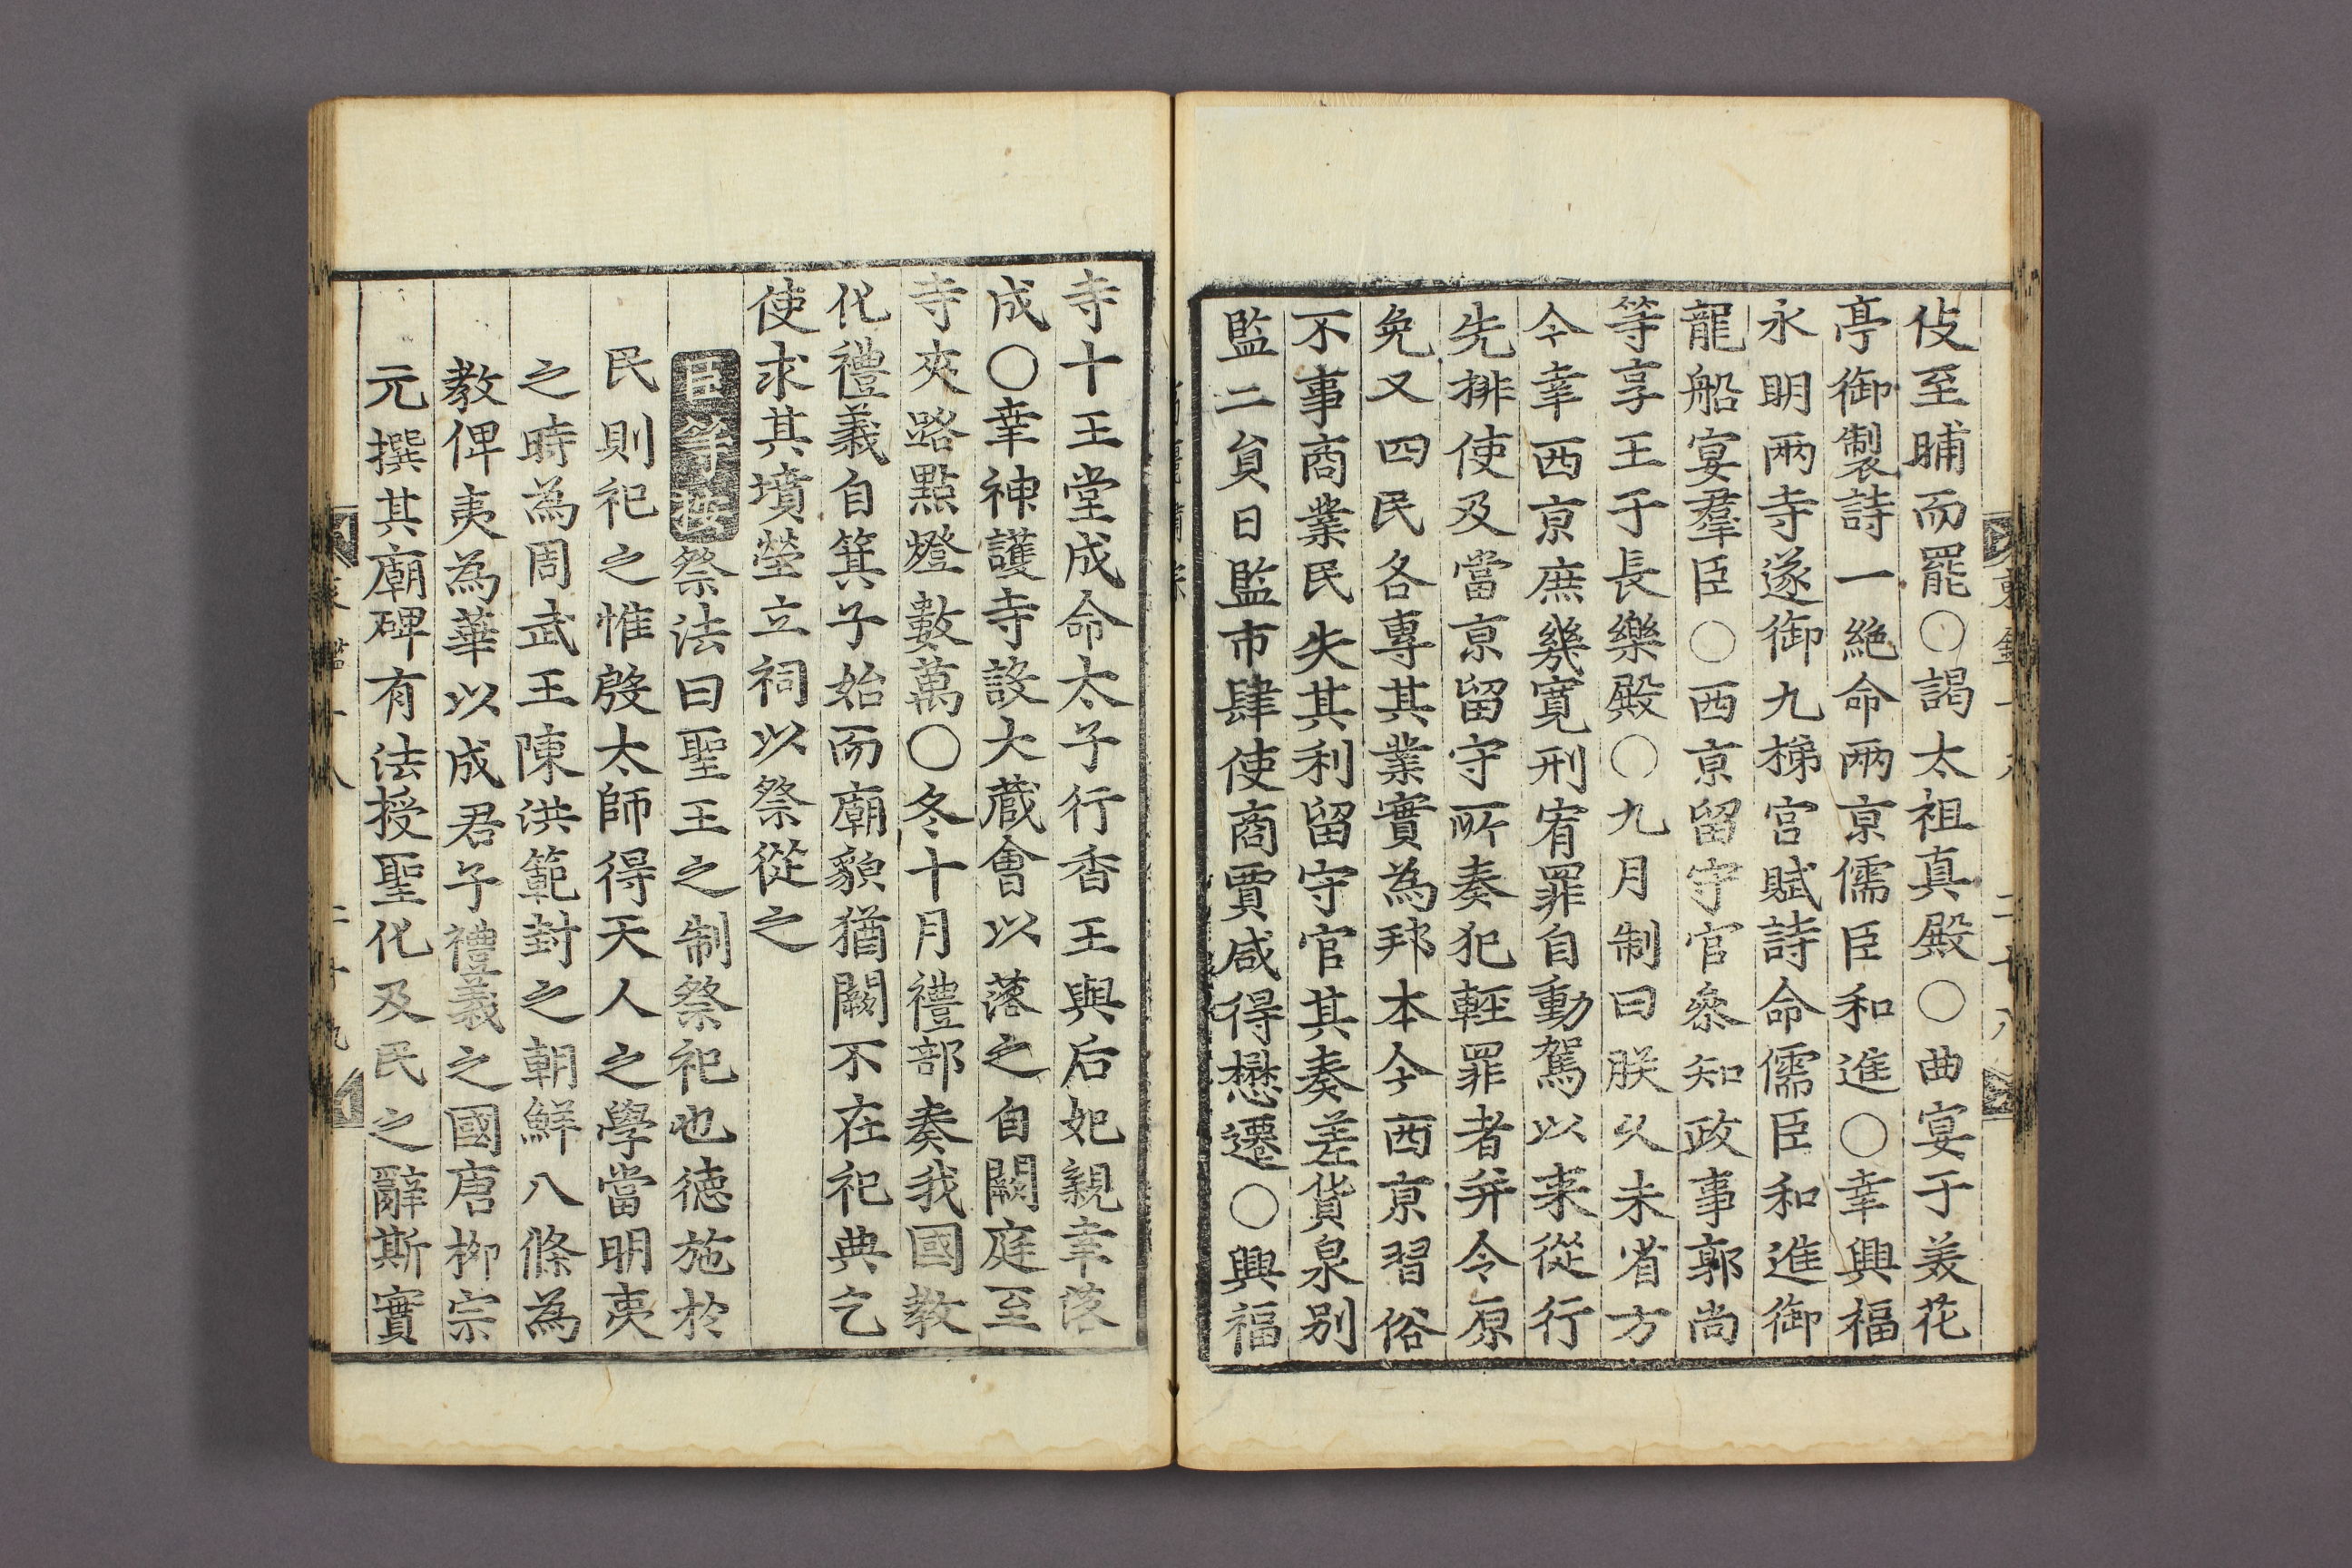 伎至晡而罷○謁太祖真殿○曲宴于美花
亭御製詩一絶命兩京儒臣和進○幸興福
永明兩寺遂御九梯宮賦詩命儒臣和進御
龍船宴羣臣○西京留守官叅知政事郭尚
等享王于長樂殿○九月制曰朕久未省方
今幸西京庶幾寛刑宥罪自動駕以来從行
先排使及當京留守所奏犯輕罪者并令原
免又四民各專其業實為邦本今西京習俗
不事商業民失其利留守官其奏差貨泉别
監二貟日監市肆使商賈咸得懋遷○興福
寺十王堂成命太子行香王與后妃親幸落
成○幸神護寺設大蔵會以落之自闕庭至
寺夾路點燈數萬○冬十月禮部奏我國教
化禮義自箕子始而廟貌猶闕不在祀典乞
使求其墳塋立祠以祭從之
臣等按祭法曰聖王之制祭祀也徳施於
民則祀之惟殷太師得天人之學當明夷
之時為周武王陳洪範封之朝鮮八條為
教俾夷為華以成君子禮義之國唐柳宗
元撰其廟碑有法授聖化及民之辭斯實